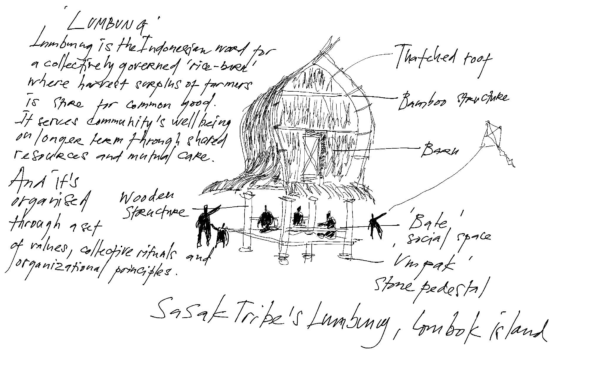 'LUMBUNG'
Lumbung is the Indonesian word for
a collectively governed 'rice-barn'
where harvest surplus of farmers
is store for common good.
It serves community's well being
on longer term through shared
resources and mutual care.
And it's
organised
through a set
of values, collective rituals and
organizational principles.
Thatched roof
Bamboo structure
BARN
Wooden
structure
'Bale'
social space
'Umpak'
stone pedestal
Sasak Tribe's Lumbung, Lombok island